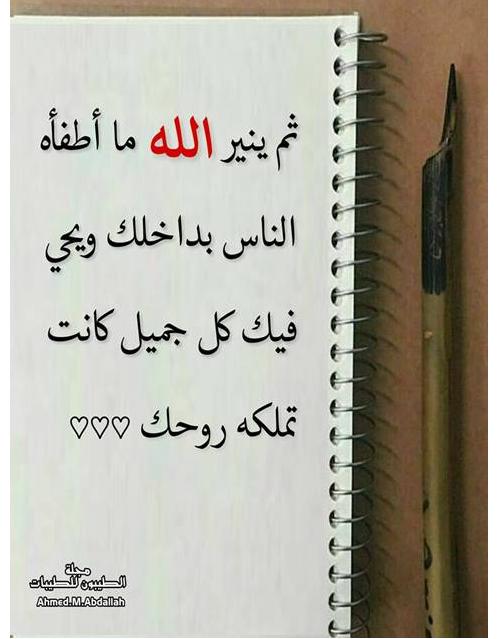 ثم ينير الله ما أطفأه
الناس بداخلك ويحي
فيك كل جميل كانت
تملكه روحك ♡♡♡
مجلة
الطيبون للطيبات
Ahmed.M.Abdallah